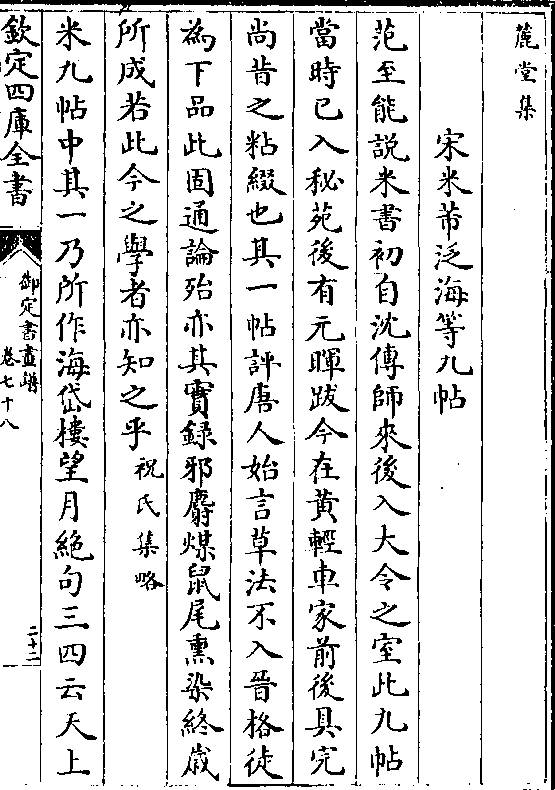 麓堂集
宋米芾泛海等九帖
范至能說米書初自沈傳師來後入大令之室此九帖
當時已入秘苑後有元暉跋今在黄輕車家前後具完
尚昔之粘綴也其一帖評唐人始言草法不入晉格徒
為下品此固通論殆亦其實録邪麝煤鼠尾熏染終嵗
所成若此今之學者亦知之乎祝氏集略
米九帖中其一乃所作海岱樓望月絶句三四云天上
欽定四庫全書
御定書畫譜
卷七十八
二十二